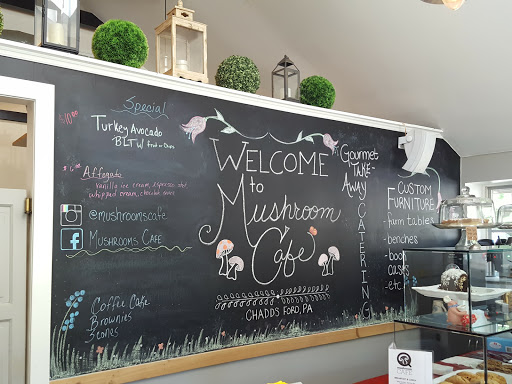 Special
$10.00
Turkey Avocado
BLT w/ Fruit or Chips
Affogato
vanilla ice cream, espresso shot
whipped cream, chocolate
@mushroomscafe
MUSHROOMS CAFE
Coffee Cake
Brownies
Scones
WELCOME
to
Mushroom
Cafe
CHADDS FORD, PA
Gourmet
TAKE-
AWAY
CATERING
CUSTOM
FURNITURE
- farm tables
- benches
- book
cases
- etc.